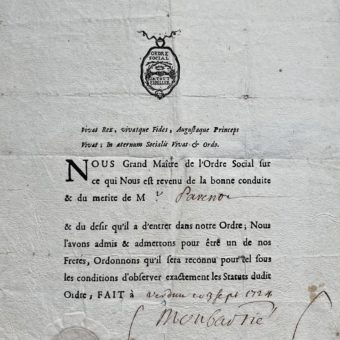 ORDRE
SOCIAL
Vivat Rex, vivatque Fides, Augustaque Princeps
Vivat; In æternum Socialis Vivat & Ordo.
NOUS Grand Maître de l'Ordre Social sur
ce qui Nous est revenu de la bonne conduite
& du merite de M.r
& du desir qu'il a d'entrer dans notre Ordre; Nous
l'avons admis & admettons pour être un de nos
Freres, Ordonnons qu'il sera reconnu pour tel sous
les conditions d'observer exactement les Statuts dudit
Ordre, FAIT à Verdun ce 3 sept 1724